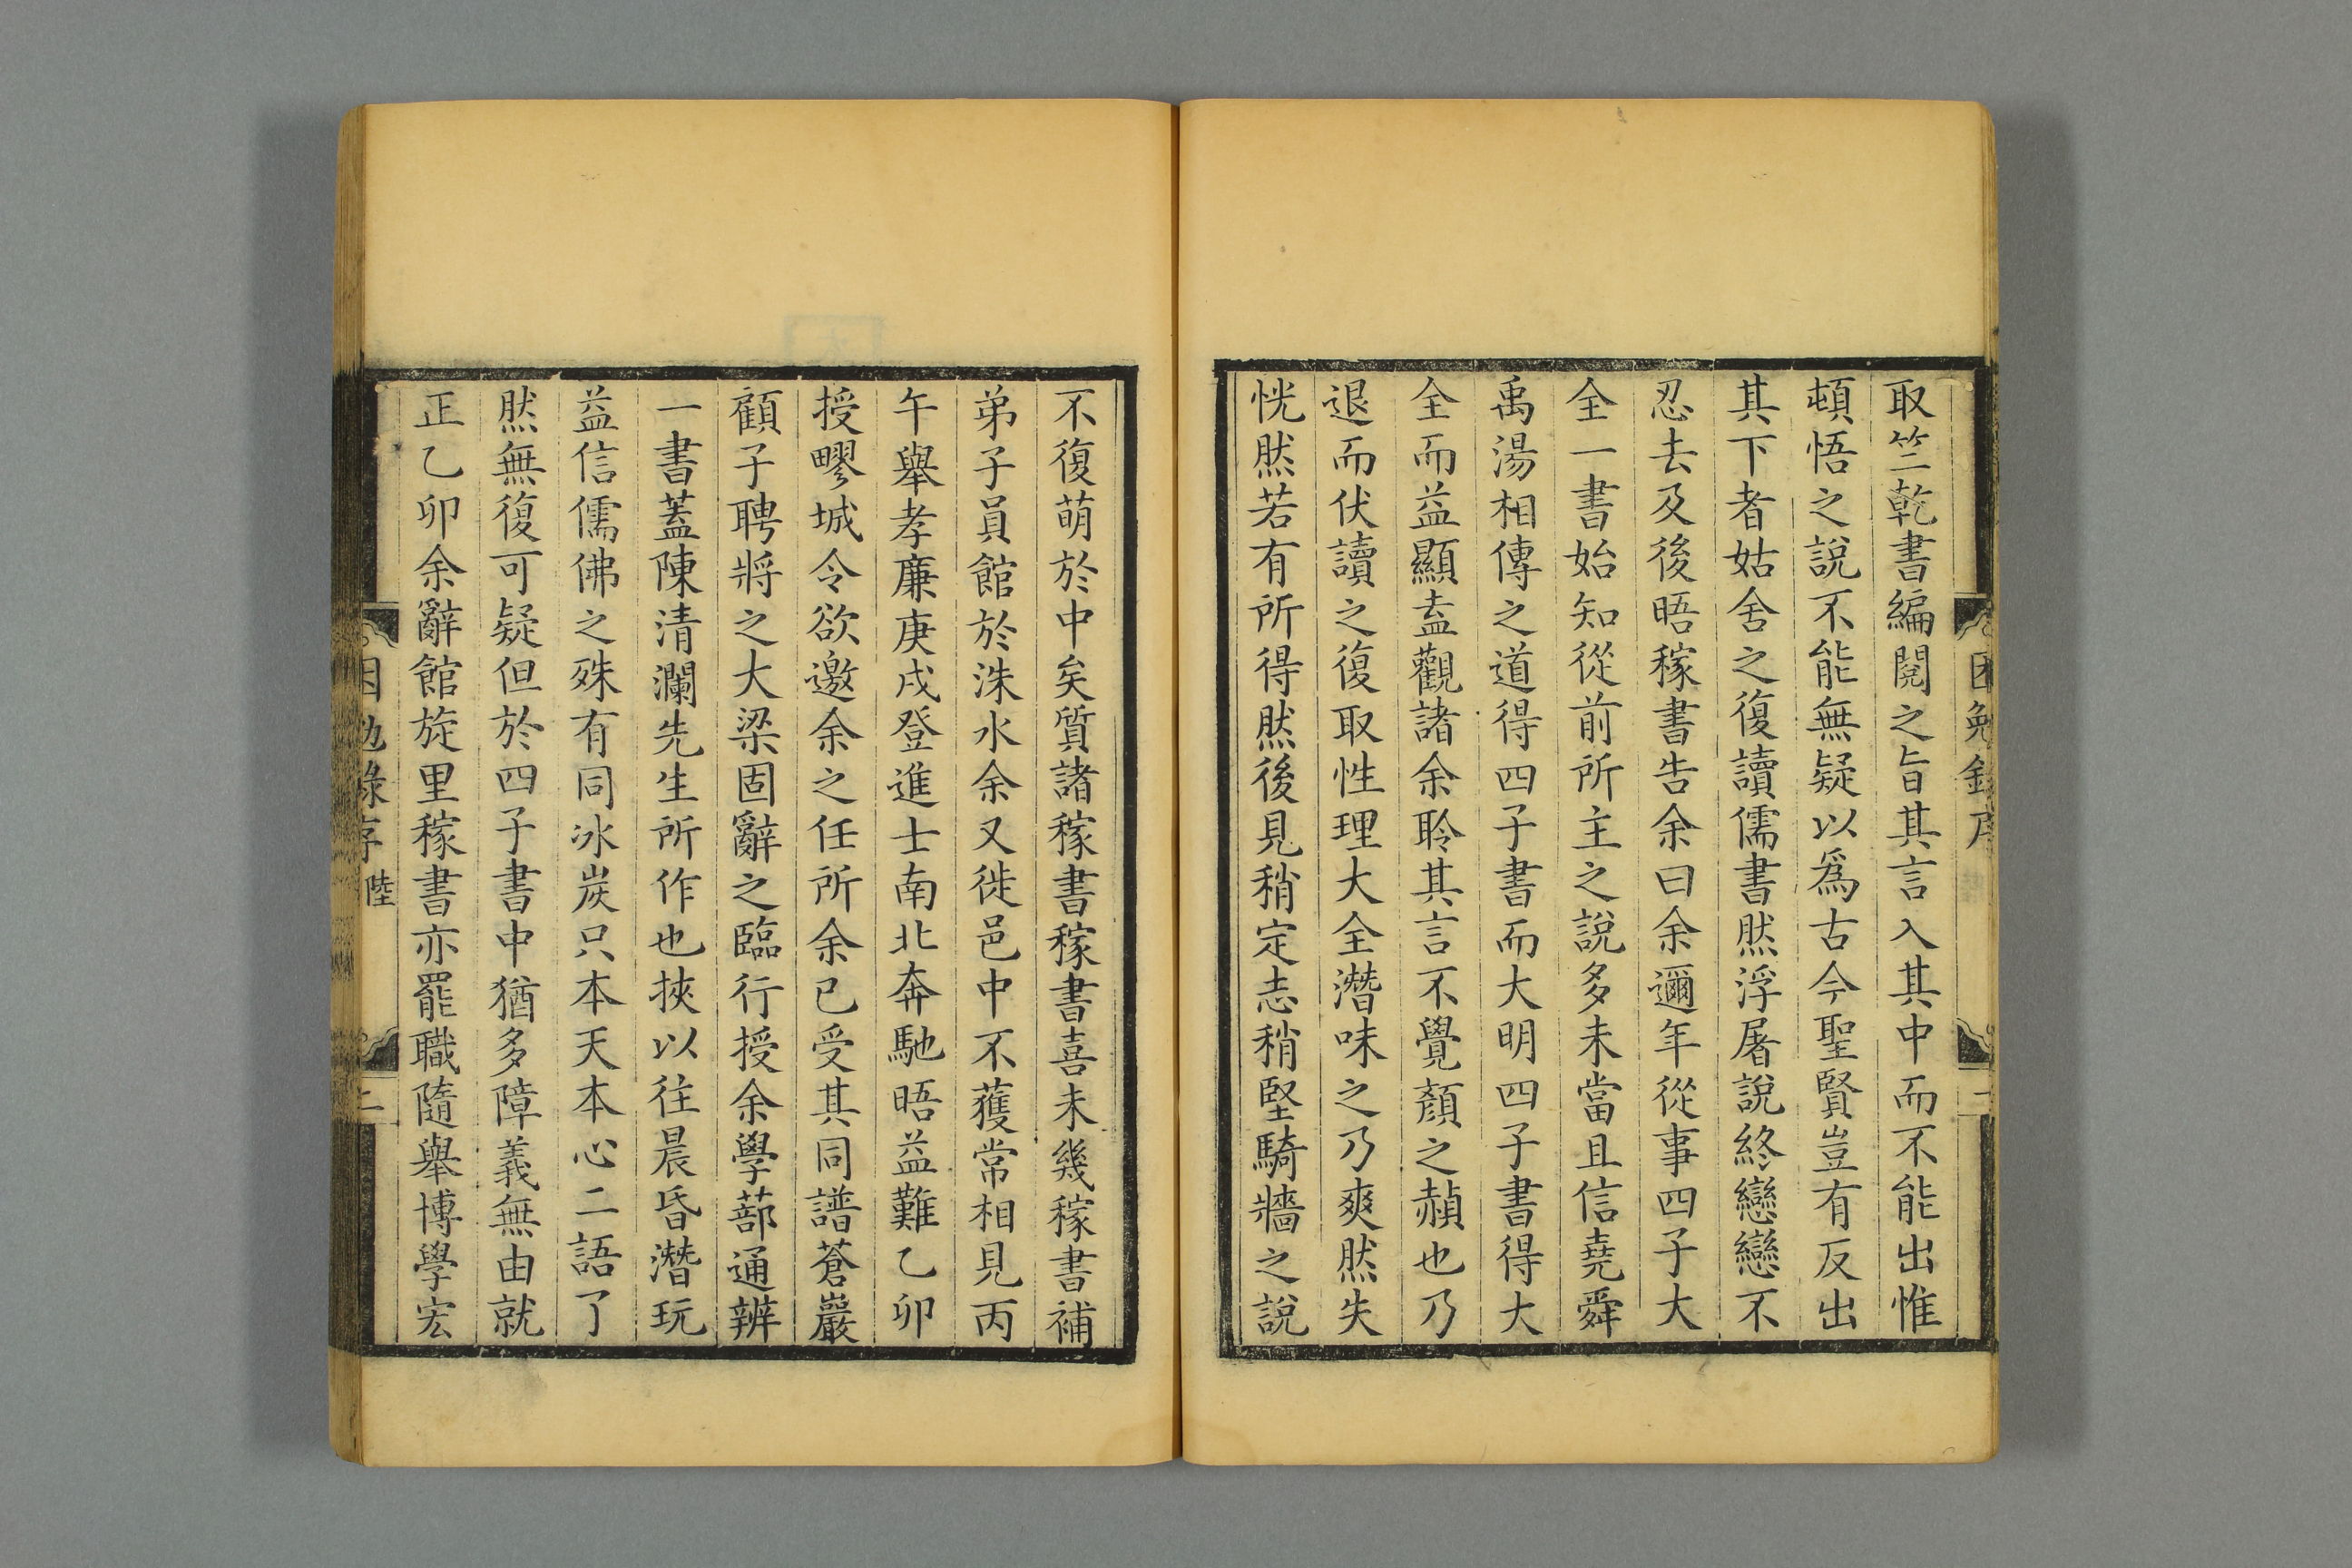 取竺乾書編閱之旨其言入其中而不能出惟
頓悟之說不能無疑以爲古今聖賢豈有反出
其下者姑舍之復讀儒書然浮屠說終戀戀不
忍去及後晤稼書告余曰余邇年從事四子大
全一書始知從前所主之說多未當且信堯舜
禹湯相傳之道得四子書而大明四子書得大
全而益顯盍觀諸余聆其言不覺顏之赬也乃
退而伏讀之復取性理大全潛味之乃爽然失
恍然若有所得然後見稍定志稍堅騎牆之說
不復萌於中矣質諸稼書稼書喜未幾稼書補
弟子員館於洙水余又徙邑中不獲常相見丙
午舉孝廉庚戌登進士南北奔馳晤益難乙卯
授疁城令欲邀余之任所余已受其同譜蒼巖
顧子聘將之大梁固辭之臨行授余學蔀通辨
一書蓋陳清瀾先生所作也挾以往晨昏潛玩
益信儒佛之殊有同冰炭只本天本心二語了
然無復可疑但於四子書中猶多障義無由就
正乙卯余辭館旋里稼書亦罷職隨舉博學宏
困勉錄序 陸 二